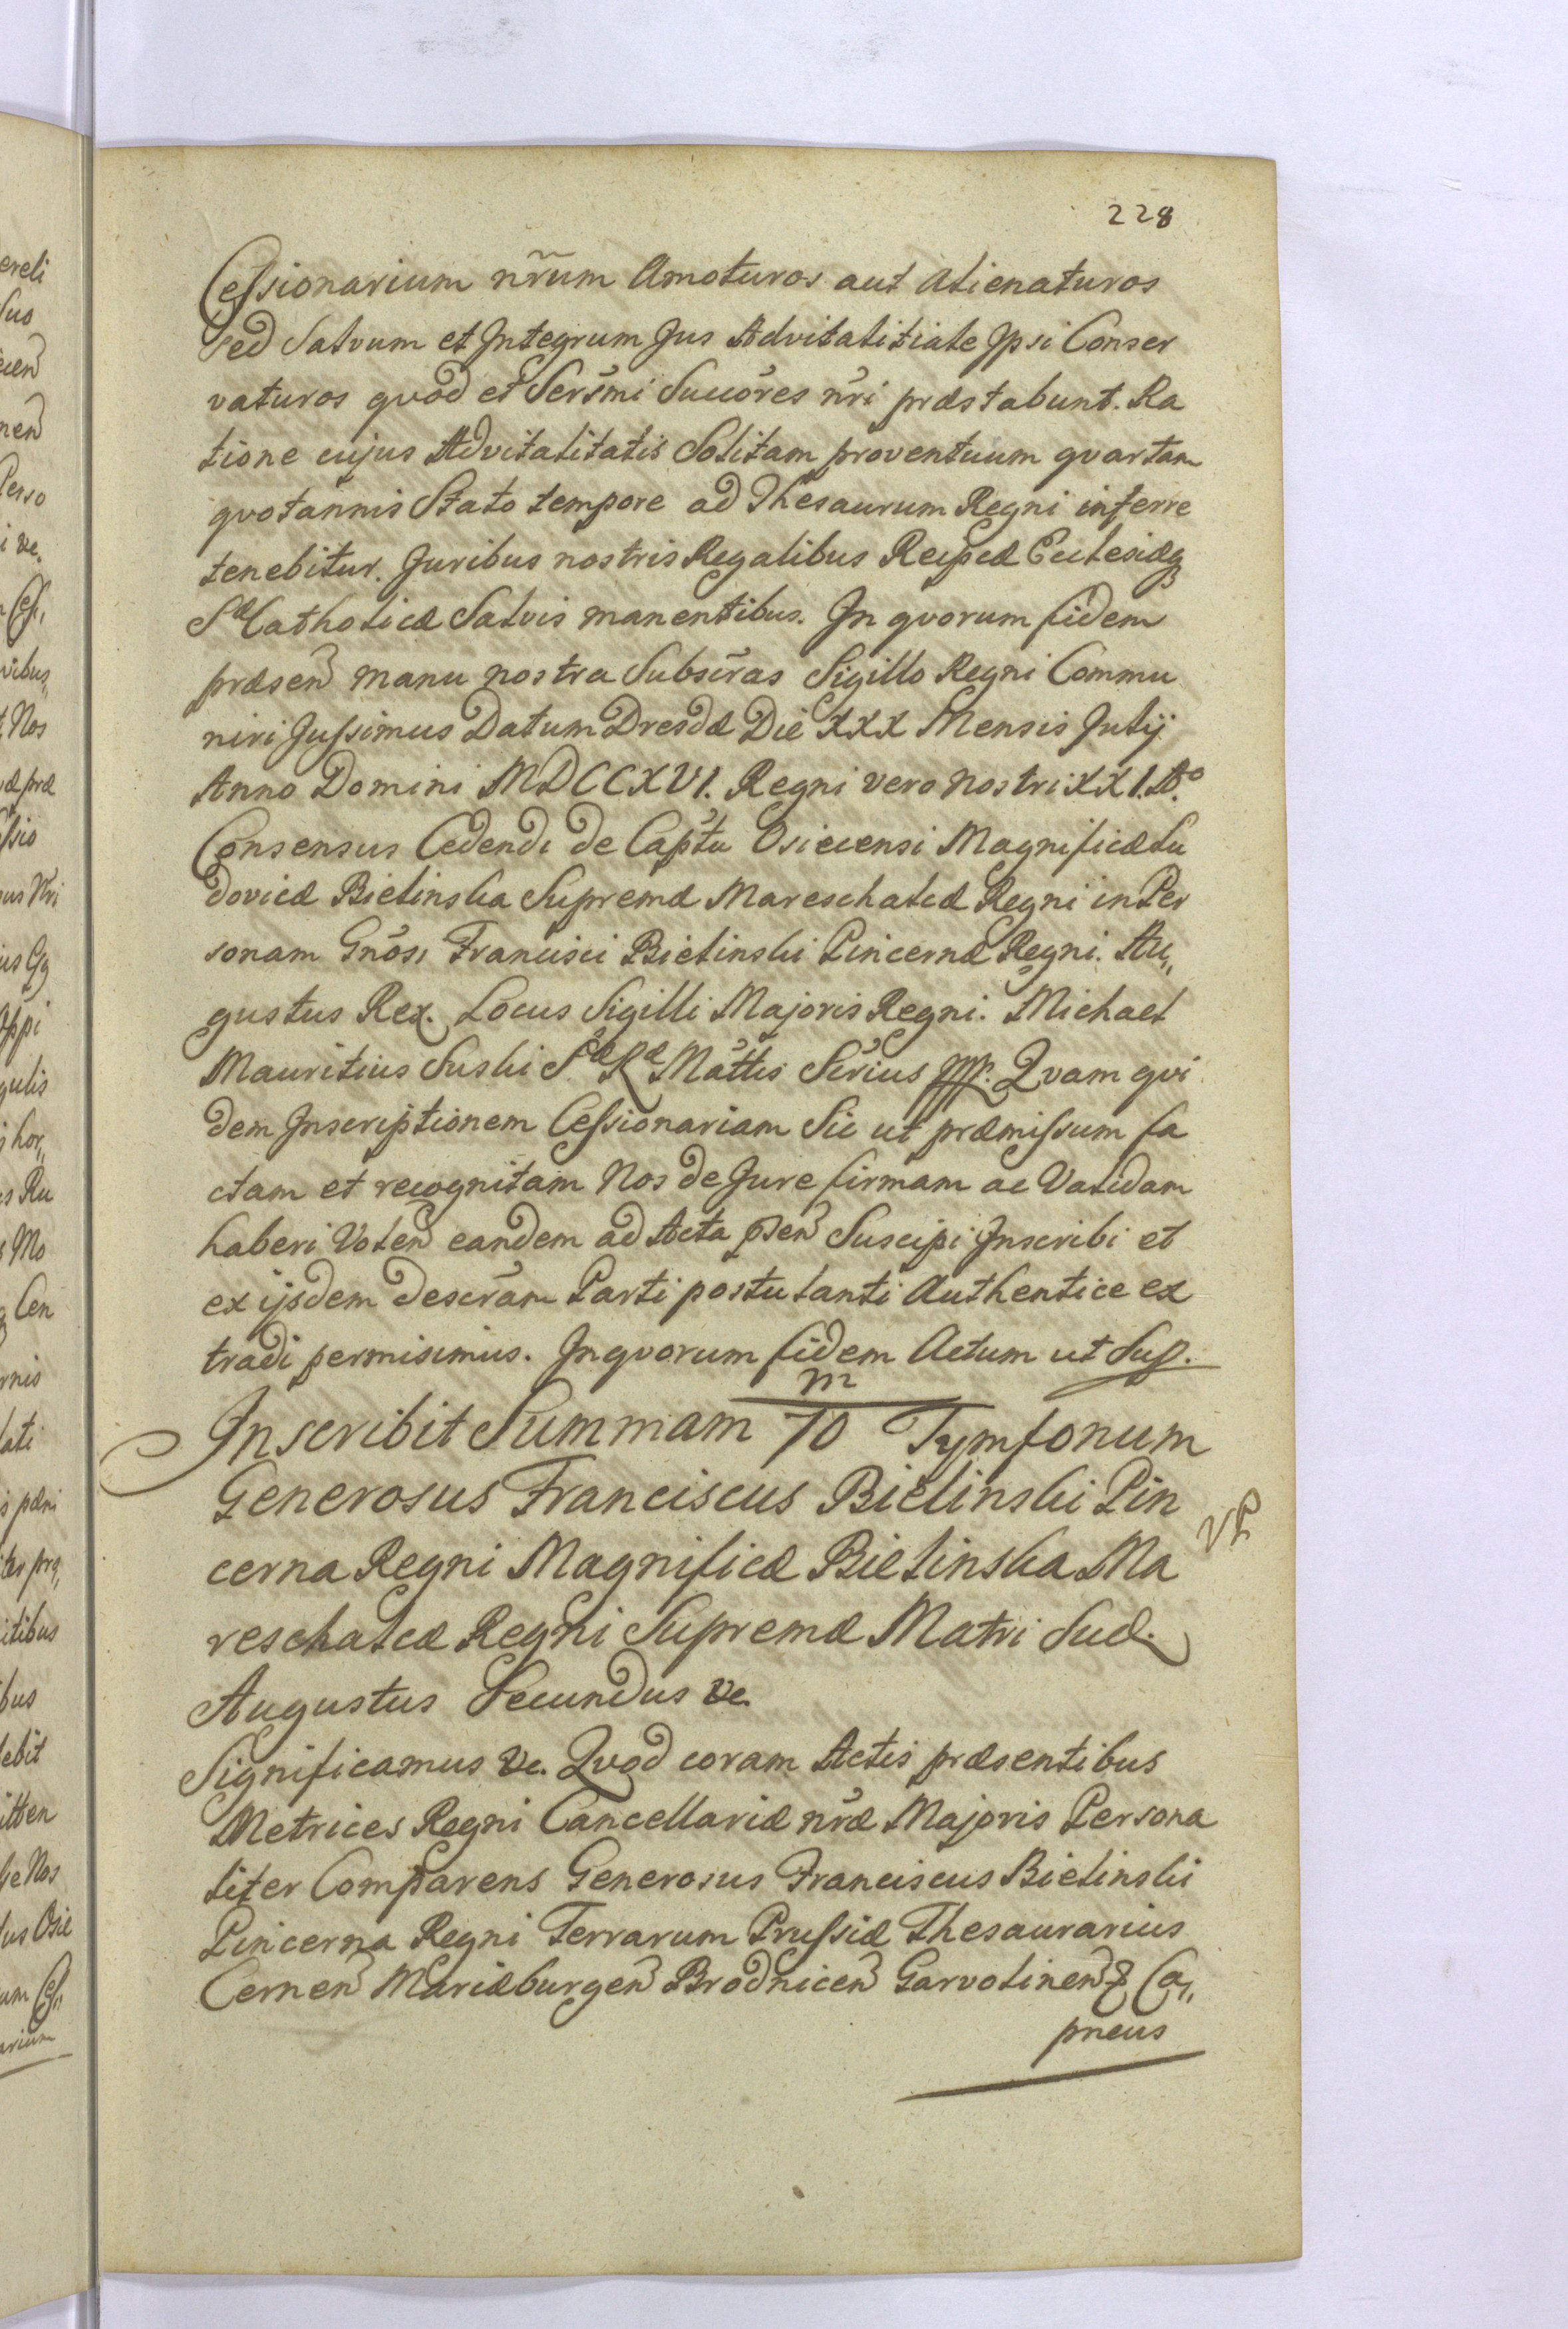 228
Cessionarium nr̃um Amoturos aut Alienaturos
sed Salvum et Integrum Jus Advitalitiale Ipsi Conser
vaturos qvod et Serẽmi Succõres nr̃i præstabunt. Ra
tione cujus Advitalitatis Solitam proventuum qvartam
qvotannis Stato tempore ad Thesaurum Regni inferre
tenebitur. Juribus nostris Regalibus Reipcæ Ecclesiæq
Sæ Catholicæ Salvis manentibus. In qvorum fidem
præsen manu nostra Subscr̃as Sigillo Regni Commu
niri Jussimus Datum Dresdæ Die XXX Mensis Julij
Anno Domini MDCCXVI. Regni vero nostri XXI. Aº.
Consensus Cedendi de Cap̃tu Osiecensi Magnificæ Lu
dovicæ Bielinska Supremæ Mareschalcæ Regni in Per
sonam Gnõsi Francisci Bielinski Pincernæ Regni. Au„
gustus Rex. Locus Sigilli Majoris Regni. Michael
Mauritius Suski Sæ Ræ Mãttis Sẽrius mp. Qvam qvi
dem Inscriptionem Cessionariam Sic ut præmissum fa
ctam et recognitam Nos de Jure firmam ac Validam
haberi Volen eandem ad Acta p̃sen Suscipi Inscribi et
ex ijsdem descr̃am Parti postulanti Authentice ex
tradi permisimus. In qvorum fidem Actum ut Sup.
m
Inscribit Summam 70 Tymfonum
Generosus Franciscus Bielinski Pin
cerna Regni Magnificæ Bielinska Ma
reschalcæ Regni Supremæ Matri Suæ.
Augustus Secundus &c.
Significamus &c. Qvod coram Actis præsentibus
Metrices Regni Cancellariæ nr̃æ Majoris Persona
liter Comparens Generosus Franciscus Bielinski
Pincerna Regni Terrarum Prussiæ Thesaurarius
Cernen Mariæburgen Brodnicen Garvolinen & Ca„
pneus